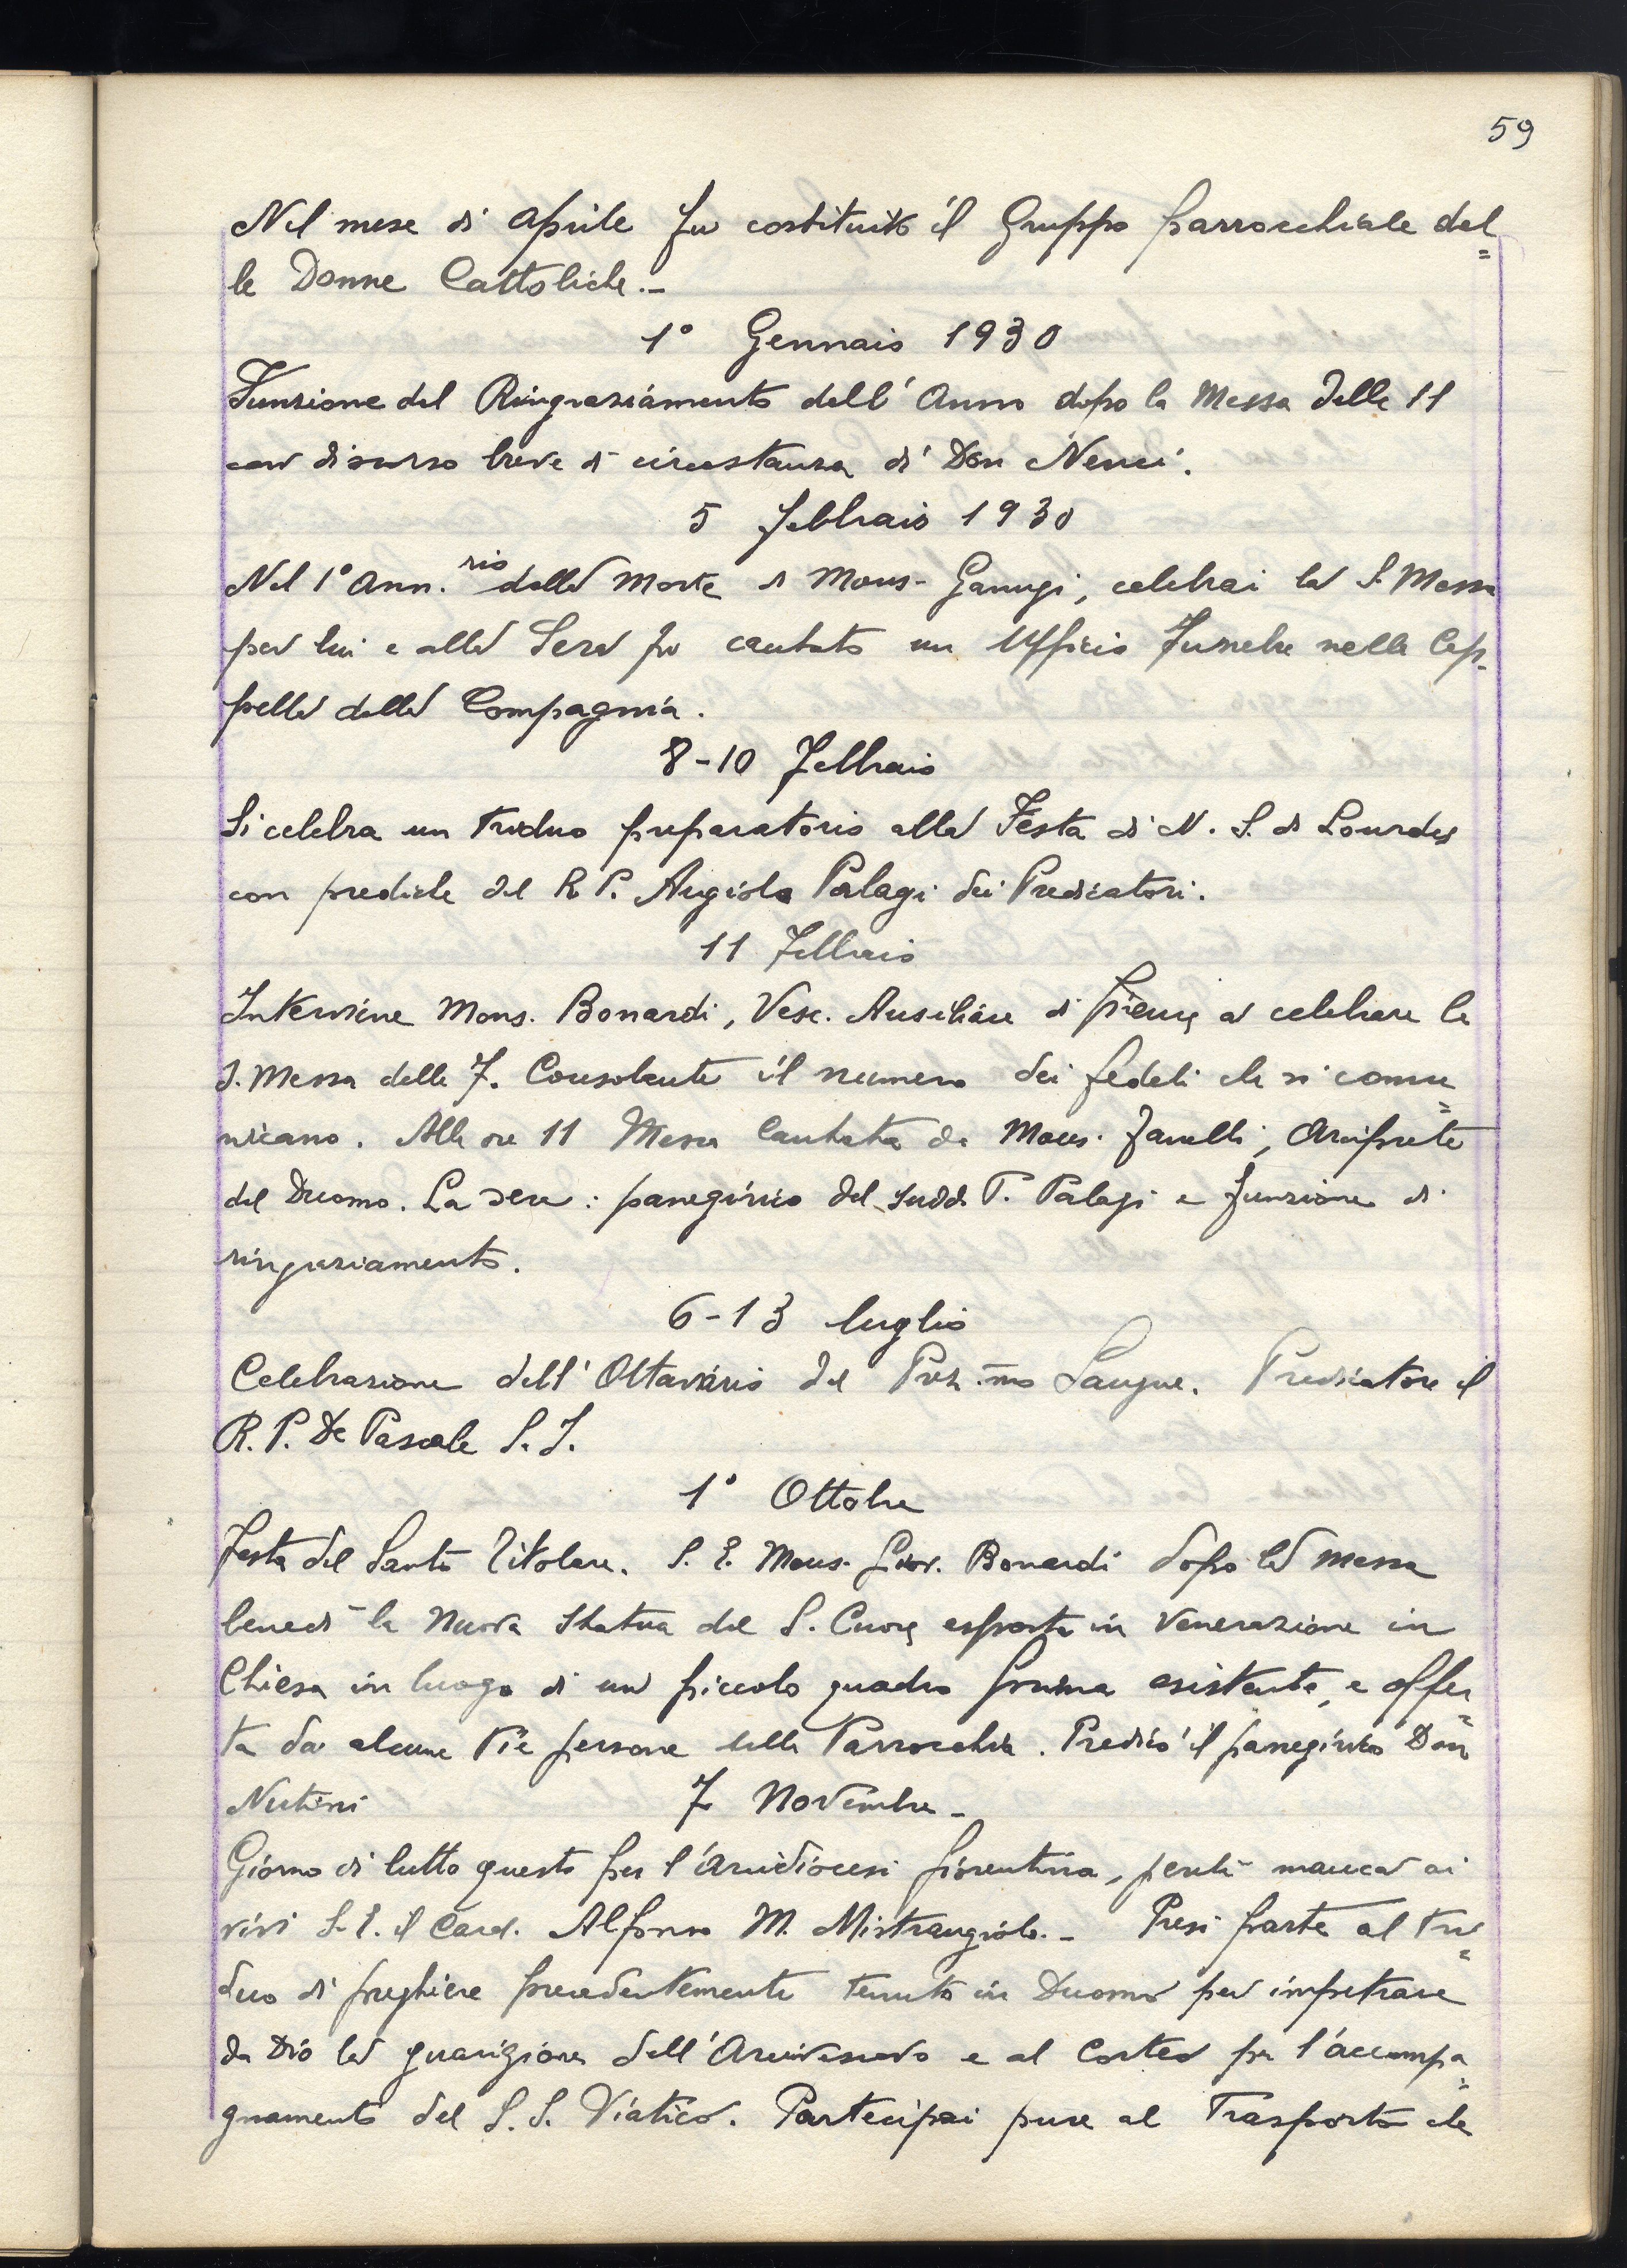 59
Nel mese di Aprile fu costituito il Gruppo parrocchiale del=
le Donne Cattoliche.-
1° Gennaio 1930
Funzione del Ringraziamento dell'Anno dopo la Messa delle 11
con discorso breve di circostanza di Don Nenci.
5 febbraio 1930
Nel 1° Ann.rio della Morte di Mons. Ganugi, celebrai la S. Messa
per lui e alla Sera fu cantato un Ufficio Funebre nella Cap-
pella della Compagnia.
8-10 Febbraio
Si celebra un Triduo preparatorio alla Festa di N. S. di Lourdes
con prediche del R. P. Angiolo Palagi dei Predicatori.
11 Febbraio
Interviene Mons. Bonardi, Vesc. Ausiliare di Firenze a celebrare la
S. Messa delle 7. Consolante il numero dei fedeli che si comu=
nicano. Alle ore 11 Messa Cantata da Mons. Zanelli, Arciprete
del Duomo. La sera: panegirico del sudd. P. Palagi e funzione di
ringraziamento.
6-13 luglio
Celebrazione dell'Ottavario del Prez.mo Sangue. Predicatore il
R. P. De Pascale S. J.
1° Ottobre
Festa del Santo Titolare. S. E. Mons. Giov. Bonardi dopo la messa
benedì la Nuova Statua del S. Cuore esposta in Venerazione in
Chiesa in luogo di un piccolo quadro prima esistente, e offer=
ta da alcune Pie persone della Parrocchia. Predicò il panegirico Don
Nutini 7 Novembre-
Giorno di lutto questo per l'Arcidiocesi fiorentina, perchè mancò ai
vivi S. E. il Card. Alfonso M. Mistrangiolo.- Presi parte al Tri=
duo di preghiere precedentemente tenuto in Duomo per impetrare
da Dio la guarigione dell'Arcivescovo e al Corteo per l'accompa=
gnamento del S.S. Viatico. Partecipai pure al Trasporto che